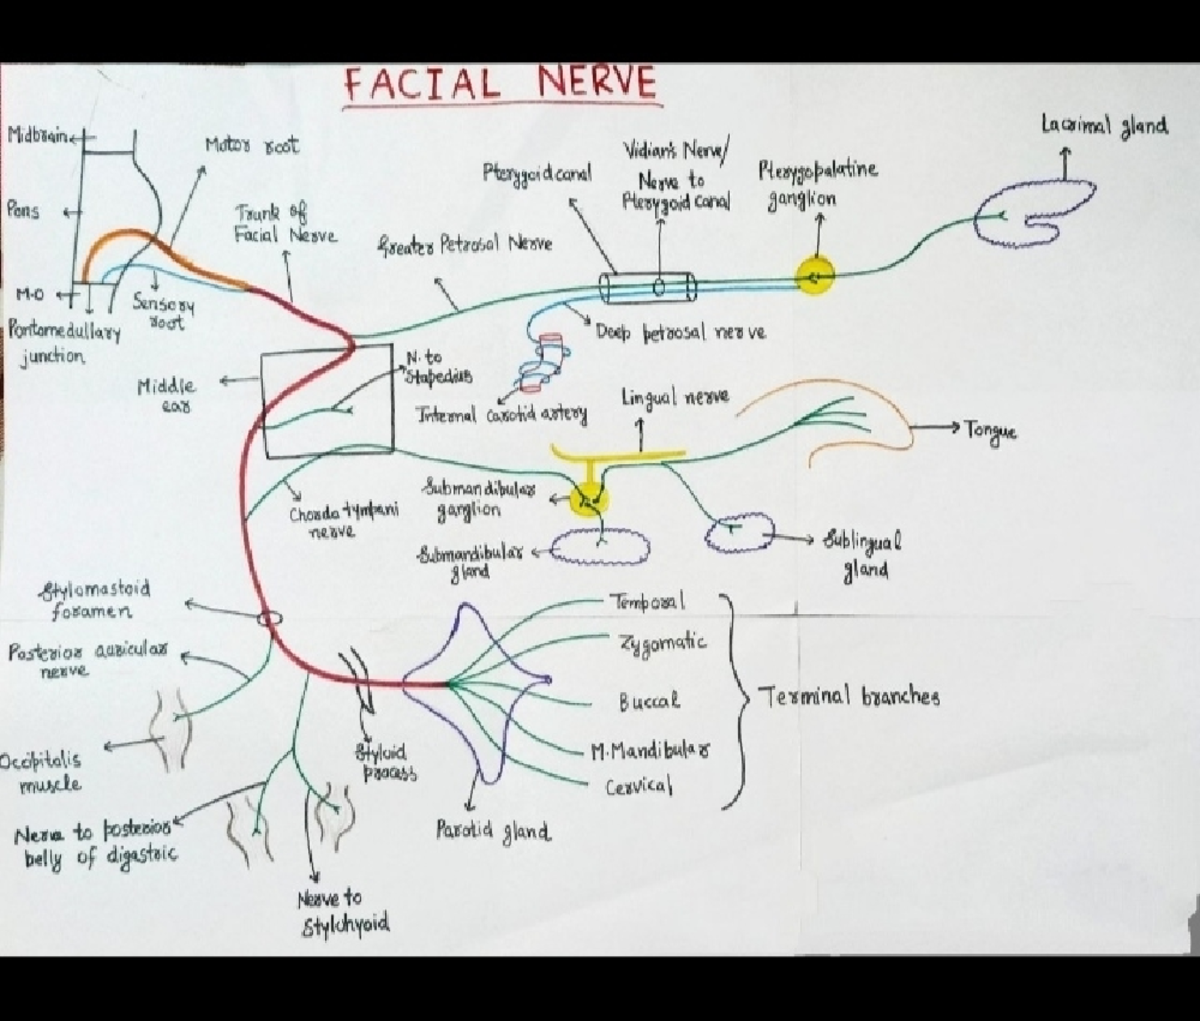 FACIAL NERVE
Midbrain
Motor root
Pons
Trunk of
Facial Nerve
M.O
Sensory
root
Pontomedullary
junction
Greater Petrosal Nerve
Pterygoid canal
Vidian's Nerve/
Nerve to
Pterygoid canal
Pterygopalatine
ganglion
Lacrimal gland
Deep petrosal nerve
Internal carotid artery
Middle
ear
N. to
Stapedius
Lingual nerve
Tongue
Chorda tympani
nerve
Submandibular
ganglion
Submandibular
gland
Sublingual
gland
Stylomastoid
foramen
Posterior auricular
nerve
Occipitalis
muscle
Nerve to posterior
belly of digastric
Nerve to
Stylohyoid
Styloid
process
Parotid gland
Temporal
Zygomatic
Buccal
M.Mandibular
Cervical
Terminal branches